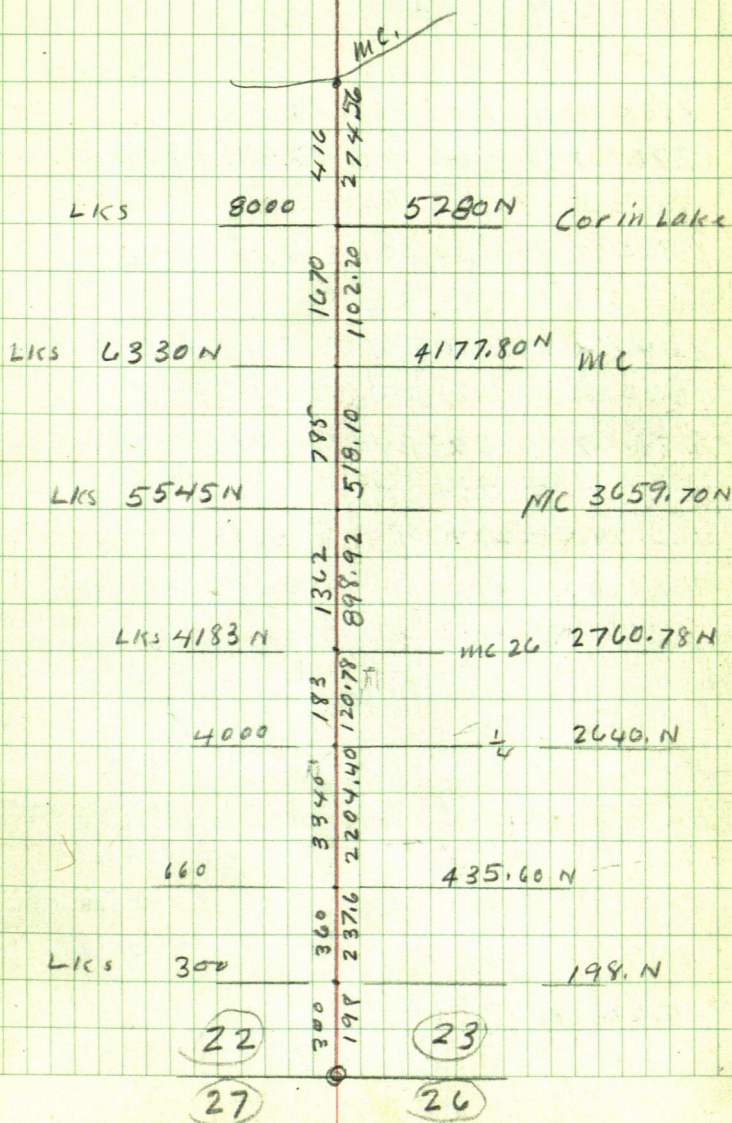 MC.
416 274.56
LKS 8000 5280N Cor in Lake
1670 1102.20
LKS 6330 N 4177.80N MC
785 518.10
LKS 5545N MC 3659.70N
1362 898.92
LKS 4183 N MC 26 2760.78N
183 120.78
4000 1/4 2640. N
3340 2204.40
660 435.60 N
360 237.6
LKS 300 198. N
300 198
22 23
27 26